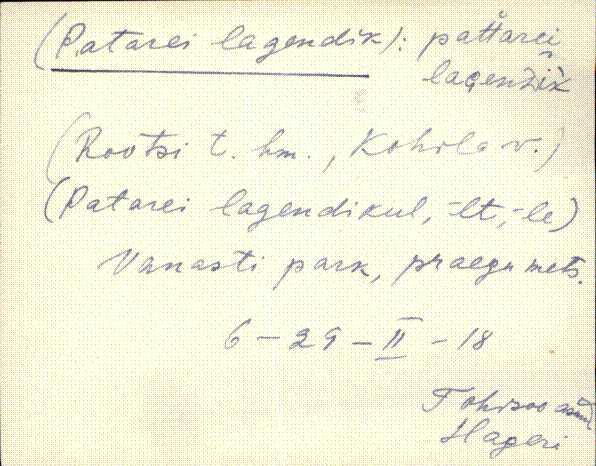 (Patarei lagendik): pattarei
lagenžik
(Rootsi t. hm., Kohila v.)
(Patarei lagendikul, -lt, -le)
Vanasti park, praegu mets.
6 - 29 - II - 18
Tohisoo as.
Hageri